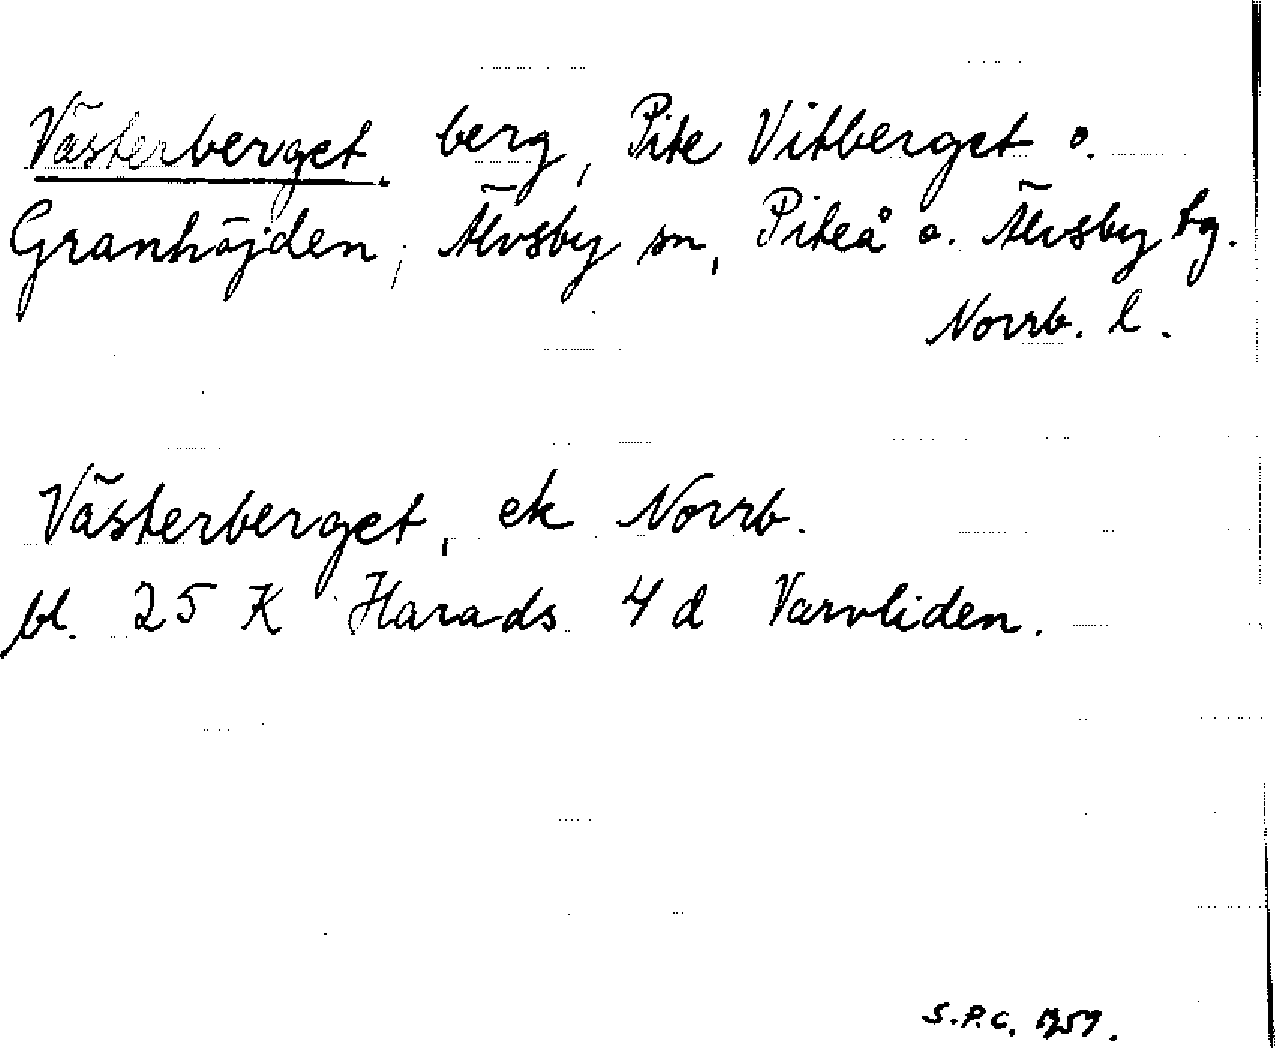 Västerberget. berg, Pite Vitberget o.
Granhöjden, Älvsby sn, Piteå o. Älvsby tg.
Norrb. l.
Västerberget, ek Norrb.
bl. 25 K Harads 4 d Varvliden.
S.P.C. 1959.